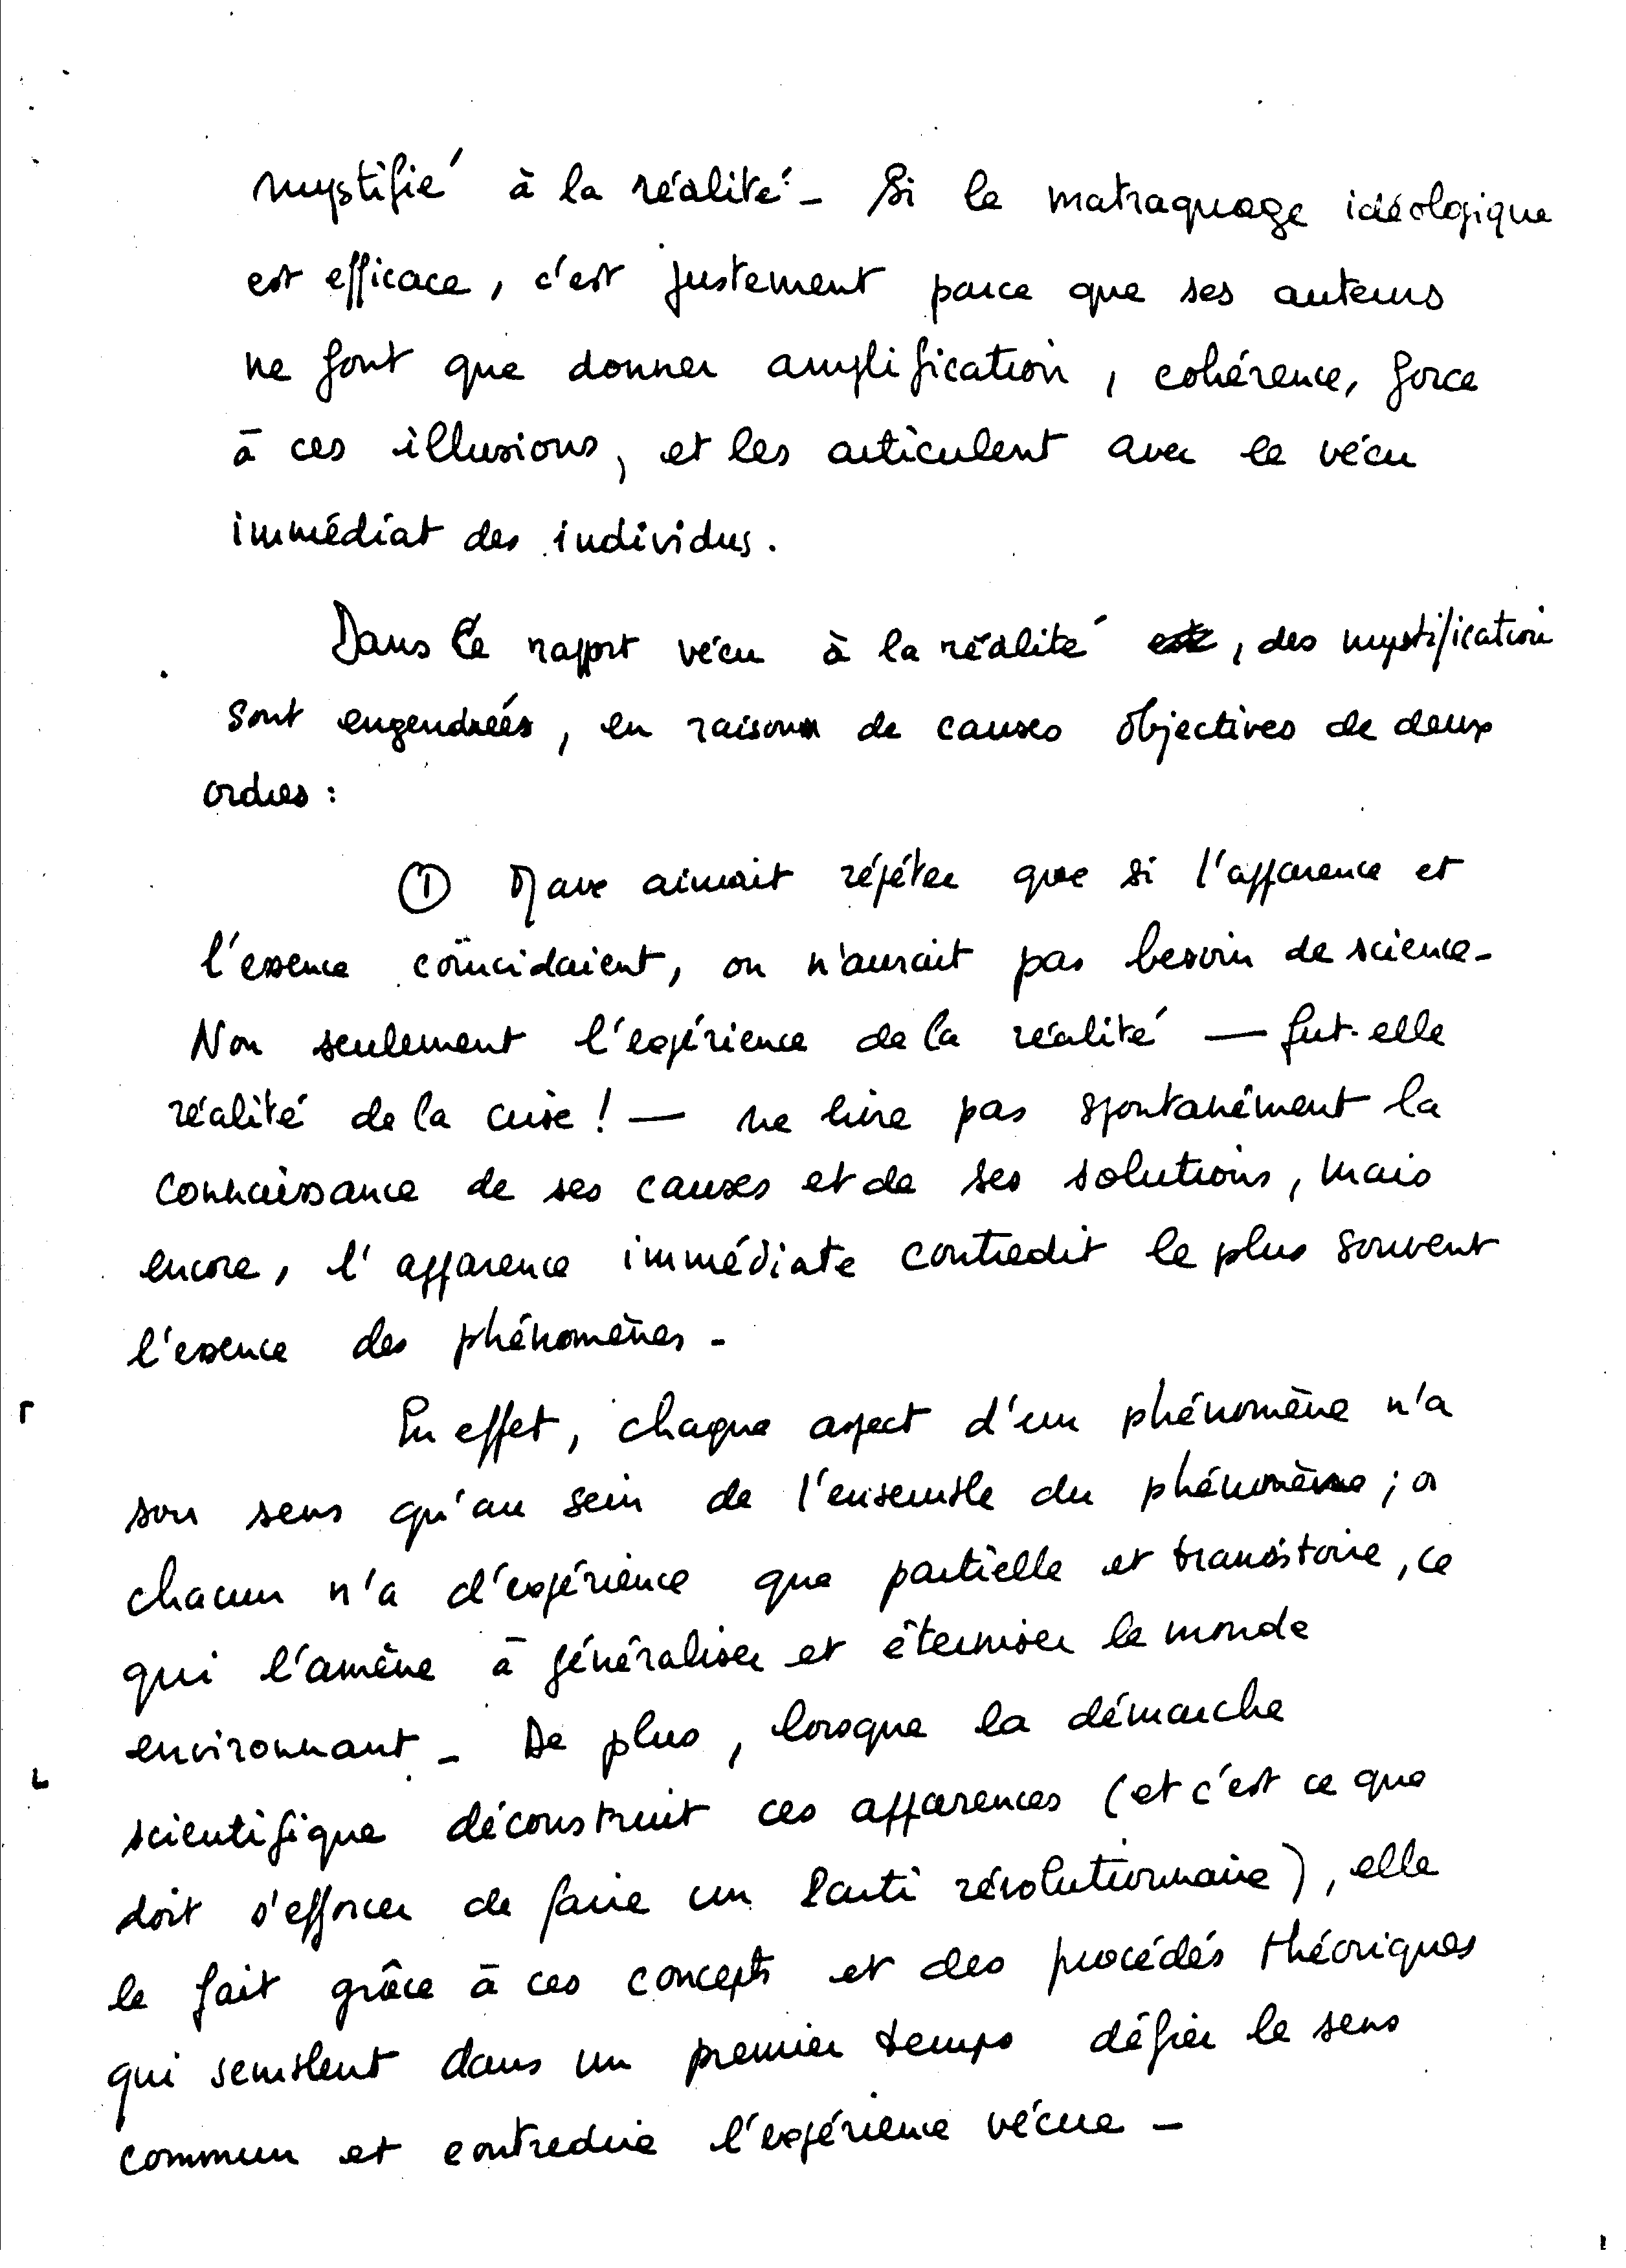 mystifié à la réalité - Si le matraquage idéologique
est efficace, c'est justement parce que ses auteurs
ne font que donner amplification, cohérence, force
à ces illusions, et les articulent avec le vécu
immédiat des individus.
Dans ce rapport vécu à la réalité , des mystification
sont engendrées, en raison de causes objectives de deux
ordres :
① Marx aimait répéter que si l'apparence et
l'essence coïncidaient, on n'aurait pas besoin de science -
Non seulement l'expérience de la réalité — fut-elle
réalité de la crise ! — ne livre pas spontanément la
connaissance de ses causes et de ses solutions, mais
encore, l'apparence immédiate contredit le plus souvent
l'essence des phénomènes -
En effet, chaque aspect d'un phénomène n'a
son sens qu'au sein de l'ensemble du phénomène ; or
chacun n'a d'expérience que partielle et transitoire, ce
qui l'amène à généraliser et éterniser le monde
environnant - De plus, lorsque la démarche
scientifique déconstruit ces apparences (et c'est ce que
doit s'efforcer de faire un Parti révolutionnaire), elle
le fait grâce à ces concepts et des procédés théoriques
qui semblent dans un premier temps défier le sens
commun et contredire l'expérience vécue -